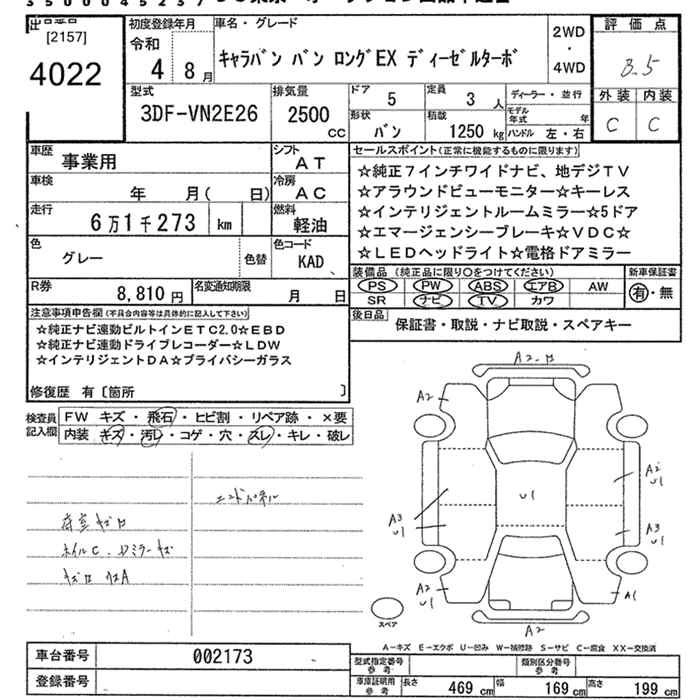 [2157]
4022
初度登録年月
令和
4 8月
車名・グレード
キャラバン バン ロングEX ディーゼルターボ
2WD
・
4WD
評価点
3.5
外装 内装
C C
型式
3DF-VN2E26
排気量
2500
cc
ドア
5
定員
3 人
形状
バン
積載
1250 kg
ディーラー・並行
モデル年式 年
ハンドル 左・右
車歴
事業用
シフト
AT
車検
年 月( 日)
冷房
AC
走行
6万1千273 km
燃料
軽油
色
グレー
色替
色コード
KAD
R券
8,810 円
名変通知期限
月 日
セールスポイント(正常に機能するものに限ります)
☆純正7インチワイドナビ、地デジTV
☆アラウンドビューモニター☆キーレス
☆インテリジェントルームミラー☆5ドア
☆エマージェンシーブレーキ☆VDC☆
☆LEDヘッドライト☆電格ドアミラー
装備品 (純正品に限り○をつけてください)
新車保証書
PS PW ABS エアB AW
SR ナビ TV カワ
有・無
後日品
保証書・取説・ナビ取説・スペアキー
注意事項申告欄(不具合内容等は具体的に記入して下さい)
☆純正ナビ連動ビルトインETC2.0☆EBD
☆純正ナビ連動ドライブレコーダー☆LDW
☆インテリジェントDA☆プライバシーガラス
修復歴 有〔箇所 〕
検査員記入欄
FW キズ・飛石・ヒビ割・リペア跡・×要
内装 キズ・汚レ・コゲ・穴・スレ・キレ・破レ
エンドパネル
A2
A2
A3
U1
U1
A2
U1
A3
U1
A2
U1
A1
A2
スペア
A-キズ E-エクボ U-凹み W-補修跡 S-サビ C-腐食 XX-交換済
車台番号
002173
登録番号
型式指定番号
参考
類別区分番号
参考
車庫証明用
参考
長さ 469 cm 幅 169 cm 高さ 199 cm